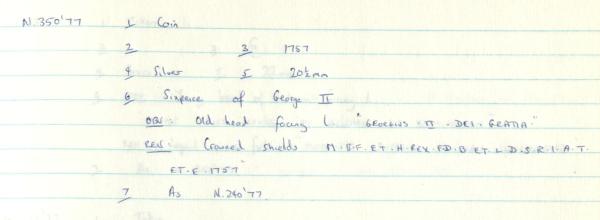 N.350'77 1 Coin
2 3 1757
4 Silver 5 20½mm
6 Sixpence of George II
OBV: Old head facing l "GEORGIUS · II · DEI · GRATIA·"
REV: Crowned shields M·B·F·ET·H·REX·F.D·B·ET·L·D·S·R·I·A·T·
ET·E·1757"
7 As N.240'77